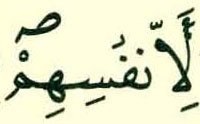 لِّأَنفُسِهِمْ ۖ